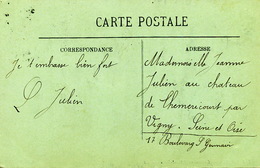 CARTE POSTALE
CORRESPONDANCE
ADRESSE
Je t'embrasse bien fort
Julien
Mademoiselle Jeanne
Julien au chateau
de Themericourt par
Vigny. Seine et Oise
17 Boulevarg St Germain